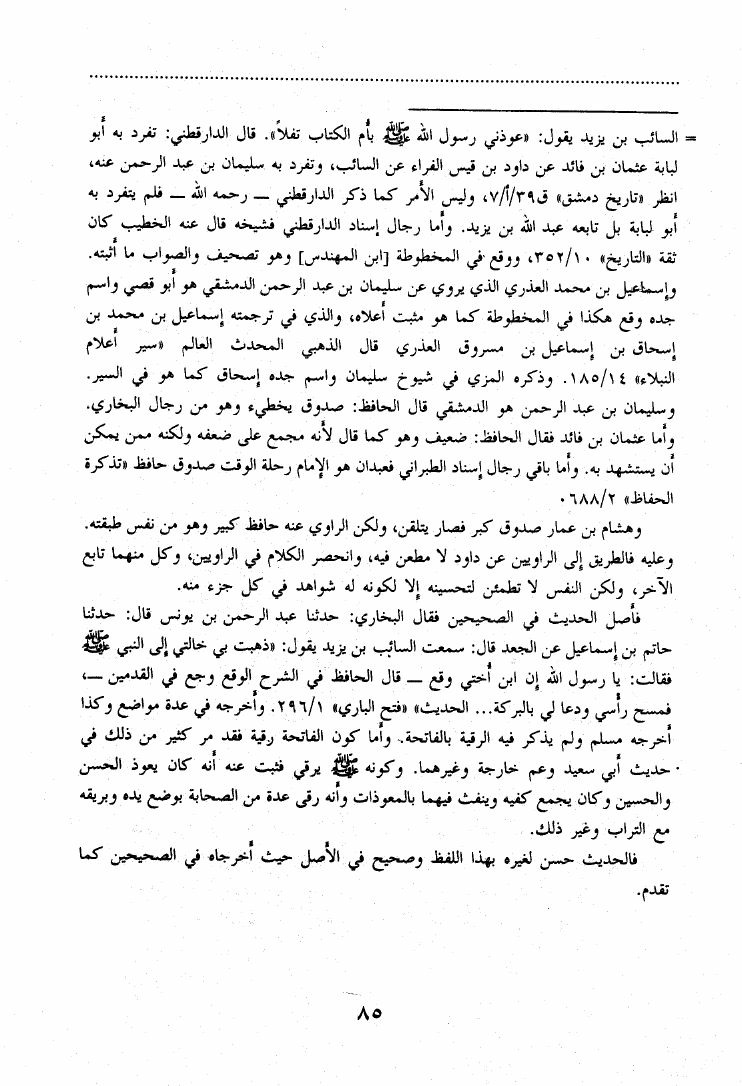 = السائب بن يزيد يقول: «عوذني رسول الله ﷺ بأم الكتاب تفلاً». قال الدارقطني: تفرد به أبو
لبابة عثمان بن فائد عن داود بن قيس الفراء عن السائب، وتفرد به سليمان بن عبد الرحمن عنه،
انظر «تاريخ دمشق» ق٣٩/أ/٧، وليس الأمر كما ذكر الدارقطني ــ رحمه الله ــ فلم يتفرد به
أبو لبابة بل تابعه عبد الله بن يزيد. وأما رجال إسناد الدارقطني فشيخه قال عنه الخطيب كان
ثقة «التاريخ» ٣٥٢/١٠، ووقع في المخطوطة [ابن المهندس] وهو تصحيف والصواب ما أثبته.
وإسماعيل بن محمد العذري الذي يروي عن سليمان بن عبد الرحمن الدمشقي هو أبو قصي واسم
جده وقع هكذا في المخطوطة كما هو مثبت أعلاه، والذي في ترجمته إسماعيل بن محمد بن
إسحاق بن إسماعيل بن مسروق العذري قال الذهبي المحدث العالم «سير أعلام
النبلاء» ١٨٥/١٤. وذكره المزي في شيوخ سليمان واسم جده إسحاق كما هو في السير.
وسليمان بن عبد الرحمن هو الدمشقي قال الحافظ: صدوق يخطيء وهو من رجال البخاري.
وأما عثمان بن فائد فقال الحافظ: ضعيف وهو كما قال لأنه مجمع على ضعفه ولكنه ممن يمكن
أن يستشهد به. وأما باقي رجال إسناد الطبراني فعبدان هو الإمام رحلة الوقت صدوق حافظ «تذكرة
الحفاظ» ٦٨٨/٢.
وهشام بن عمار صدوق كبر فصار يتلقن، ولكن الراوي عنه حافظ كبير وهو من نفس طبقته.
وعليه فالطريق إلى الراويين عن داود لا مطعن فيه، وانحصر الكلام في الراويين، وكل منهما تابع
الآخر، ولكن النفس لا تطمئن لتحسينه إلا لكونه له شواهد في كل جزء منه.
فأصل الحديث في الصحيحين فقال البخاري: حدثنا عبد الرحمن بن يونس قال: حدثنا
حاتم بن إسماعيل عن الجعد قال: سمعت السائب بن يزيد يقول: «ذهبت بي خالتي إلى النبي ﷺ
فقالت: يا رسول الله إن ابن أختي وقع ــ قال الحافظ في الشرح الوقع وجع في القدمين ــ،
فمسح رأسي ودعا لي بالبركة... الحديث» «فتح الباري» ٢٩٦/١. وأخرجه في عدة مواضع وكذا
أخرجه مسلم ولم يذكر فيه الرقية بالفاتحة. وأما كون الفاتحة رقية فقد مر كثير من ذلك في
حديث أبي سعيد وعم خارجة وغيرهما. وكونه ﷺ يرقي فثبت عنه أنه كان يعوذ الحسن
والحسين وكان يجمع كفيه وينفث فيهما بالمعوذات وأنه رقى عدة من الصحابة بوضع يده وبريقه
مع التراب وغير ذلك.
فالحديث حسن لغيره بهذا اللفظ وصحيح في الأصل حيث أخرجاه في الصحيحين كما
تقدم.
٨٥